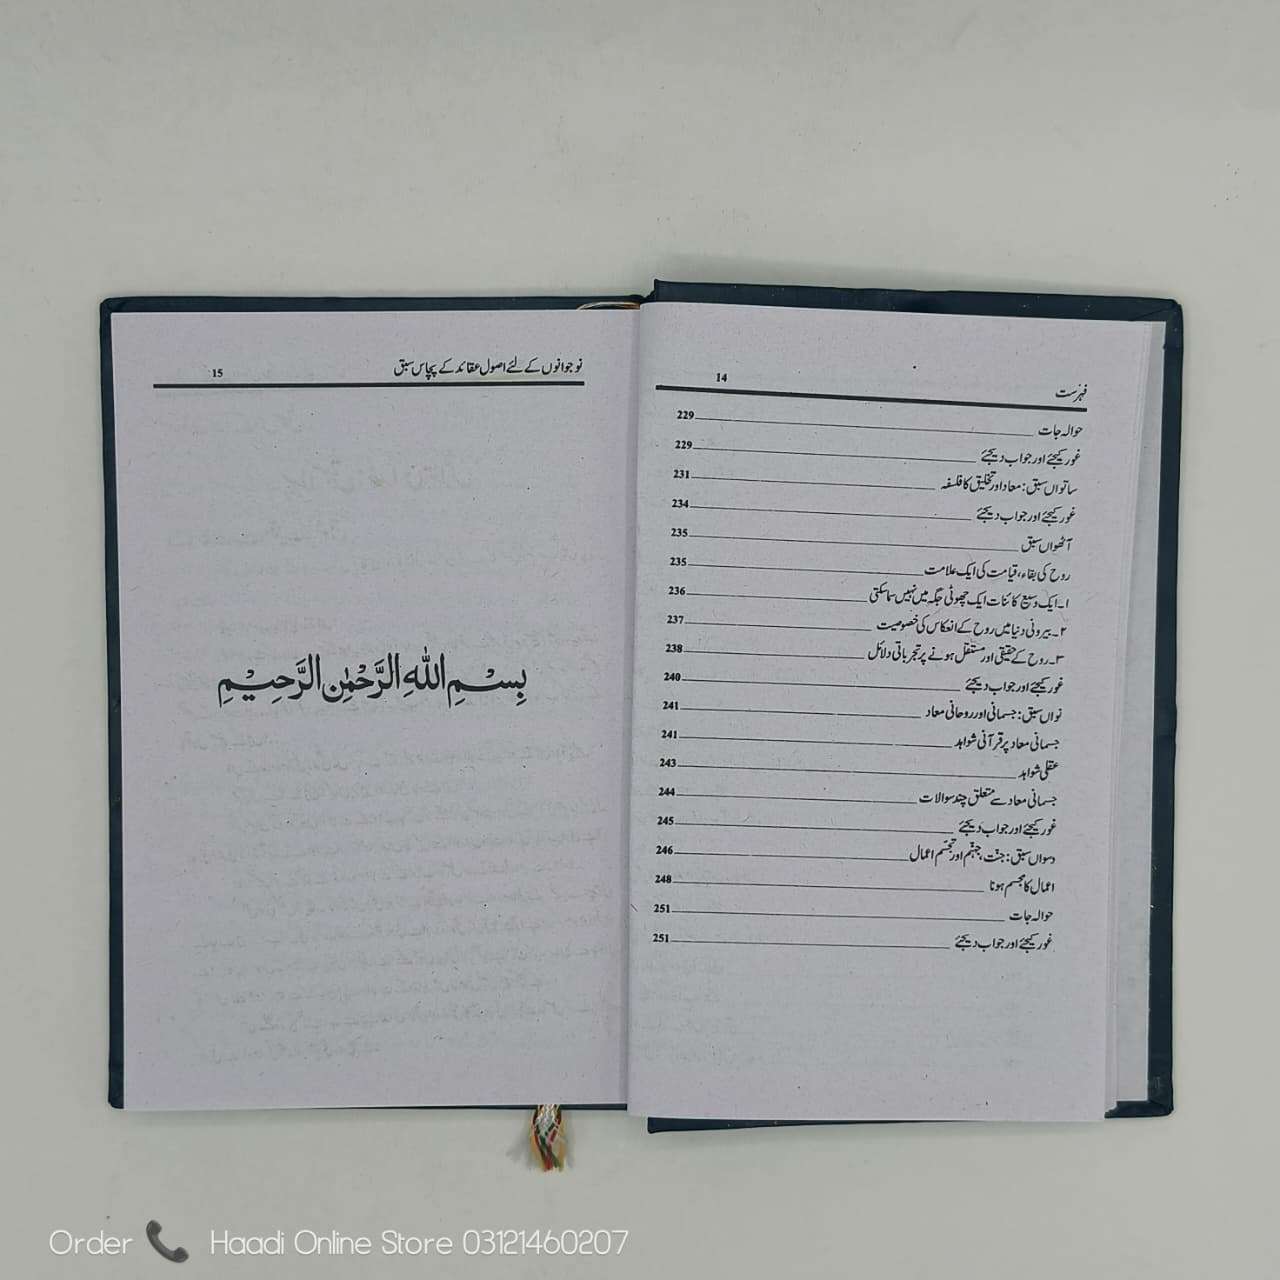 فہرست 14
حوالہ جات 229
غور کیجئے اور جواب دیجئے 229
ساتواں سبق: معاد اور تخلیق کا فلسفہ 231
غور کیجئے اور جواب دیجئے 234
آٹھواں سبق 235
روح کی بقاء، قیامت کی ایک علامت 235
۱۔ ایک وسیع کائنات ایک چھوٹی جگہ میں نہیں سما سکتی 236
۲۔ بیرونی دنیا میں روح کے انعکاس کی خصوصیت 237
۳۔ روح کے حقیقی اور مستقل ہونے پر تجرباتی دلائل 238
غور کیجئے اور جواب دیجئے 240
نواں سبق: جسمانی اور روحانی معاد 241
جسمانی معاد پر قرآنی شواہد 241
عقلی شواہد 243
جسمانی معاد سے متعلق چند سوالات 244
غور کیجئے اور جواب دیجئے 245
دسواں سبق: جنّت، جہنّم اور تجسّم اعمال 246
اعمال کا مجسم ہونا 248
حوالہ جات 251
غور کیجئے اور جواب دیجئے 251
نوجوانوں کے لئے اصول عقائد کے پچاس سبق 15
بِسْمِ اللّٰهِ الرَّحْمٰنِ الرَّحِيْمِ
Order Haadi Online Store 03121460207